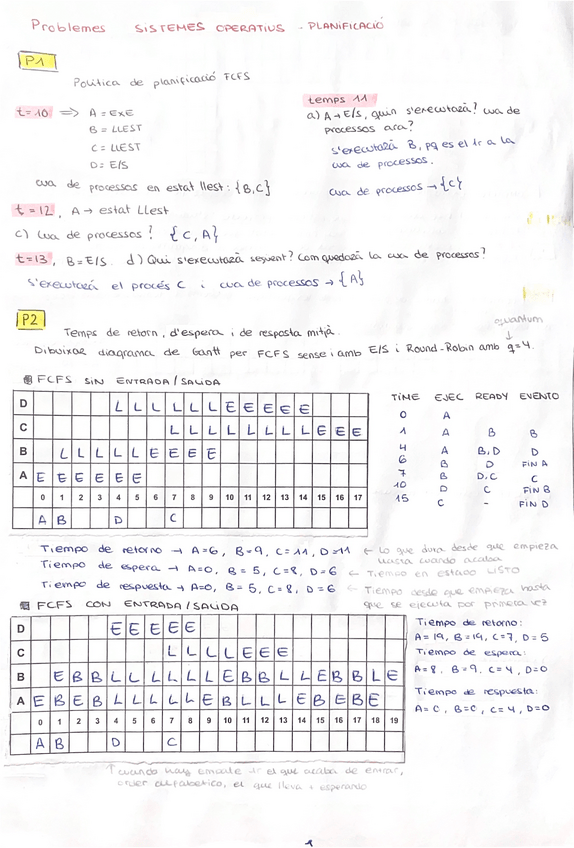 Problemes SISTEMES OPERATIUS - PLANIFICACIÓ
P1
Política de planificació FCFS
t=10 ⇒ A = EXE
B = LLEST
C = LLEST
D = E/S
cua de processos en estat llest: {B,C}
temps 11
a) A→E/S, quin s'executarà? cua de
processos ara?
s'executarà B, pq es el 1r a la
cua de processos.
cua de processos → {C}
t=12, A → estat Llest
c) cua de processos? {C, A}
t=13, B=E/S. d) Qui s'executarà següent? Com quedarà la cua de processos?
s'executarà el procés C i cua de processos → {A}
P2
Temps de retorn, d'espera i de resposta mitjà.
quantum
↓
Dibuixar diagrama de Gantt per FCFS sense i amb E/S i Round-Robin amb q=4.
FCFS SIN ENTRADA/SALIDA
D L L L L L L E E E E E
C L L L L L L L L E E E
B L L L L L E E E E
A E E E E E E
0 1 2 3 4 5 6 7 8 9 10 11 12 13 14 15 16 17
A B D C
TIME EJEC READY EVENTO
0 A
1 A B B
4 A B,D D
6 B D FIN A
7 B D,C C
10 D C FIN B
15 C - FIN D
Tiempo de retorno → A=6, B=9, C=11, D=11 ← Lo que dura desde que empieza
hasta cuando acaba
Tiempo de espera → A=0, B=5, C=8, D=6 ← Tiempo en estado LISTO
Tiempo de respuesta → A=0, B=5, C=8, D=6 ← Tiempo desde que empieza hasta
que se ejecuta por primera vez
FCFS CON ENTRADA/SALIDA
D E E E E E
C L L L L E E E
B E B B L L L L L L L E B B L L E B B L E
A E B E B L L L L L E B L L L E B E B E
0 1 2 3 4 5 6 7 8 9 10 11 12 13 14 15 16 17 18 19
A B D C
Tiempo de retorno:
A=19, B=19, C=7, D=5
Tiempo de espera:
A=8, B=9, C=4, D=0
Tiempo de respuesta:
A=0, B=0, C=4, D=0
↑ cuando hay empate 1r el que acaba de entrar,
orden alfabetico, el que lleva + esperando
1